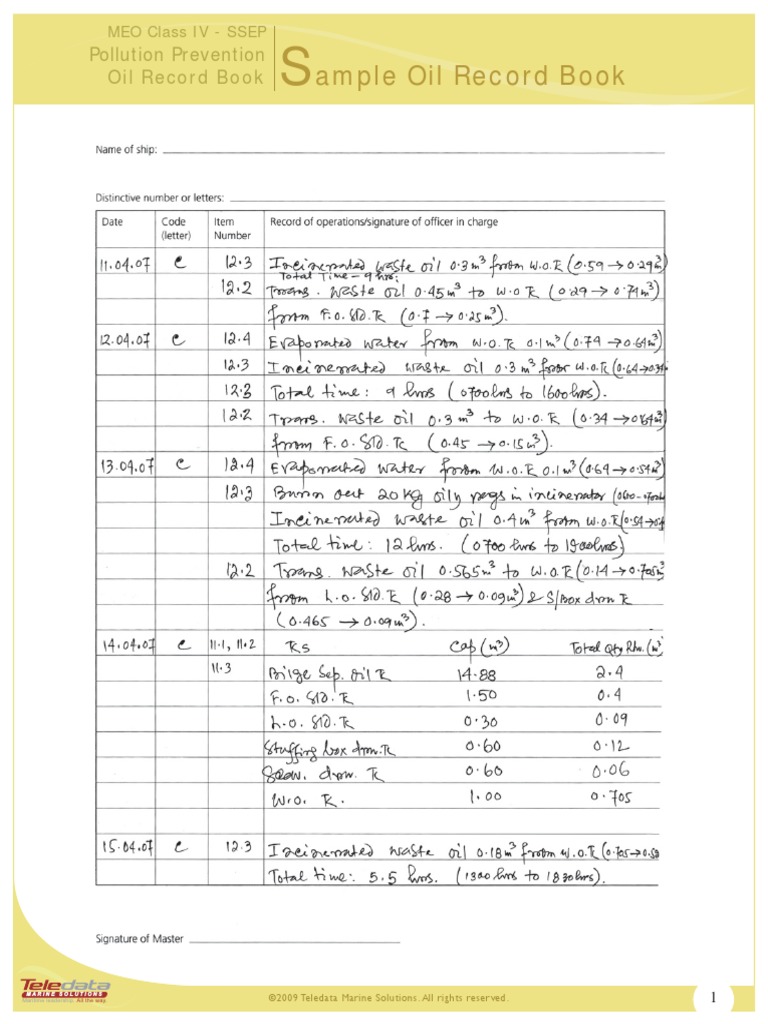 MEO Class IV - SSEP
Pollution Prevention
Oil Record Book
Sample Oil Record Book
Name of ship:
Distinctive number or letters:
Date Code (letter) Item Number Record of operations/signature of officer in charge
11.04.07 C 12.3 Incinerated waste oil 0.3m³ from W.O.TK (0.59 → 0.29m³)
Total Time - 9 hrs:
12.2 Trans. waste oil 0.45m³ to W.O.TK (0.29 → 0.74m³)
from F.O. Sld. TK (0.7 → 0.25m³).
12.04.07 C 12.4 Evaporated water from W.O.TK 0.1m³ (0.74 → 0.64m³)
12.3 Incinerated waste oil 0.3m³ from W.O.TK (0.64 → 0.34
12.3 Total time: 9 hrs (0700hrs to 1600hrs).
12.2 Trans. waste oil 0.3m³ to W.O.TK (0.34 → 0.64m³)
from F.O. Sld. TK (0.45 → 0.15m³).
13.04.07 C 12.4 Evaporated water from W.O.TK 0.1m³ (0.64 → 0.54m³)
12.3 Burn out 20 Kg oily rags in incinerator (0600-0700hrs
Incinerated waste oil 0.4m³ from W.O.TK (0.54 →
Total time: 12 hrs. (0700 hrs to 1900hrs)
12.2 Trans. waste oil 0.565m³ to W.O.TK (0.14 → 0.705m³
from L.O. Sld. TK (0.28 → 0.09m³) & S/Box drn TK
(0.465 → 0.09m³).
14.04.07 C 11.1, 11.2 TKs Cap (m³) Total Qty Rtn. (m³
11.3 Bilge Sep. oil TK 14.88 2.4
F.O. Sld. TK 1.50 0.4
L.O. Sld. TK 0.30 0.09
Stuffing box drn. TK 0.60 0.12
Scav. drn. TK 0.60 0.06
W.O. TK. 1.00 0.705
15.04.07 C 12.3 Incinerated waste oil 0.18m³ from W.O.TK (0.705 → 0.58
Total time: 5.5 hrs. (1300 hrs to 1830hrs).
Signature of Master
Teledata
MARINE SOLUTIONS
Maritime leadership. All the way.
©2009 Teledata Marine Solutions. All rights reserved.
1